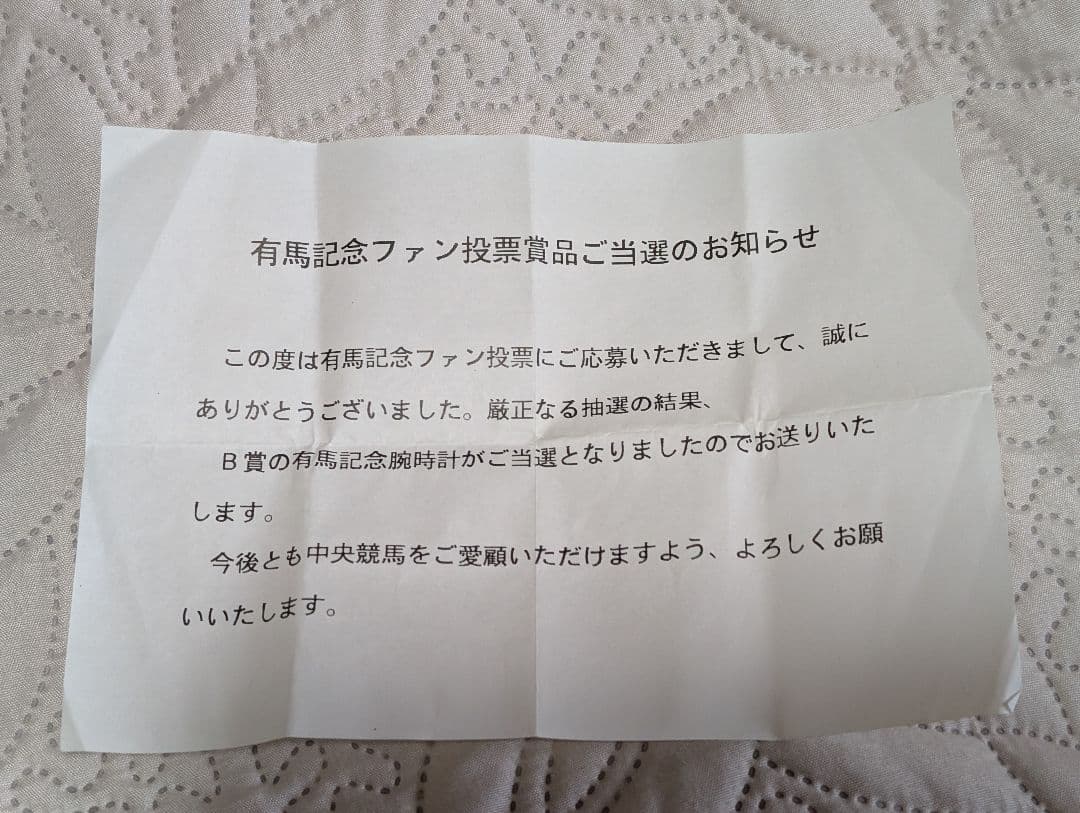 有馬記念ファン投票賞品ご当選のお知らせ
この度は有馬記念ファン投票にご応募いただきまして、誠に
ありがとうございました。厳正なる抽選の結果、
B賞の有馬記念腕時計がご当選となりましたのでお送りいた
します。
今後とも中央競馬をご愛顧いただけますよう、よろしくお願
いいたします。